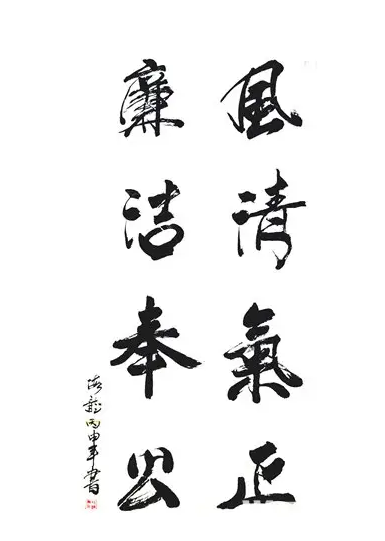 風清氣正
廉洁奉公
海龍丙申年書